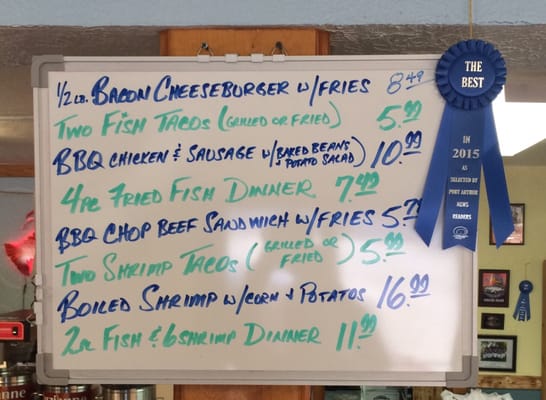 1/2 LB. BACON CHEESEBURGER W/FRIES 8.49
TWO FISH TACOS (GRILLED OR FRIED) 5.99
BBQ CHICKEN & SAUSAGE W/(BAKED BEANS + POTATO SALAD) 10.99
4PC FRIED FISH DINNER 7.49
BBQ CHOP BEEF SANDWICH W/FRIES 5.79
TWO SHRIMP TACOS (GRILLED OR FRIED) 5.99
BOILED SHRIMP W/CORN + POTATOS 16.99
2PC FISH & 6 SHRIMP DINNER 11.99
THE
BEST
IN
2015
AS
SELECTED BY
PORT ARTHUR
NEWS
READERS